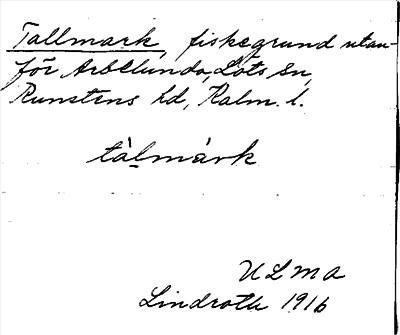 Tallmark, fiskegrund utan-
för Arbelunda, Löts sn,
Runstens hd, Kalm. l.
tàlmàrk
ULMA
Lindroth 1916